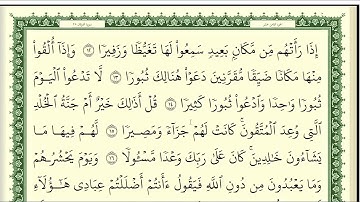 إِذَا رَأَتْهُم مِّن مَّكَانٍۭ بَعِيدٍ سَمِعُوا۟ لَهَا تَغَيُّظًا وَزَفِيرًا ١٢ وَإِذَآ أُلْقُوا۟
مِنْهَا مَكَانًا ضَيِّقًا مُّقَرَّنِينَ دَعَوْا۟ هُنَالِكَ ثُبُورًا ١٣ لَّا تَدْعُوا۟ ٱلْيَوْمَ
ثُبُورًا وَٰحِدًا وَٱدْعُوا۟ ثُبُورًا كَثِيرًا ١٤ قُلْ أَذَٰلِكَ خَيْرٌ أَمْ جَنَّةُ ٱلْخُلْدِ
ٱلَّتِى وُعِدَ ٱلْمُتَّقُونَ ۚ كَانَتْ لَهُمْ جَزَآءً وَمَصِيرًا ١٥ لَّهُمْ فِيهَا مَا
يَشَآءُونَ خَٰلِدِينَ ۚ كَانَ عَلَىٰ رَبِّكَ وَعْدًا مَّسْـُٔولًا ١٦ وَيَوْمَ يَحْشُرُهُمْ
وَمَا يَعْبُدُونَ مِن دُونِ ٱللَّهِ فَيَقُولُ ءَأَنتُمْ أَضْلَلْتُمْ عِبَادِى هَٰٓؤُلَآءِ